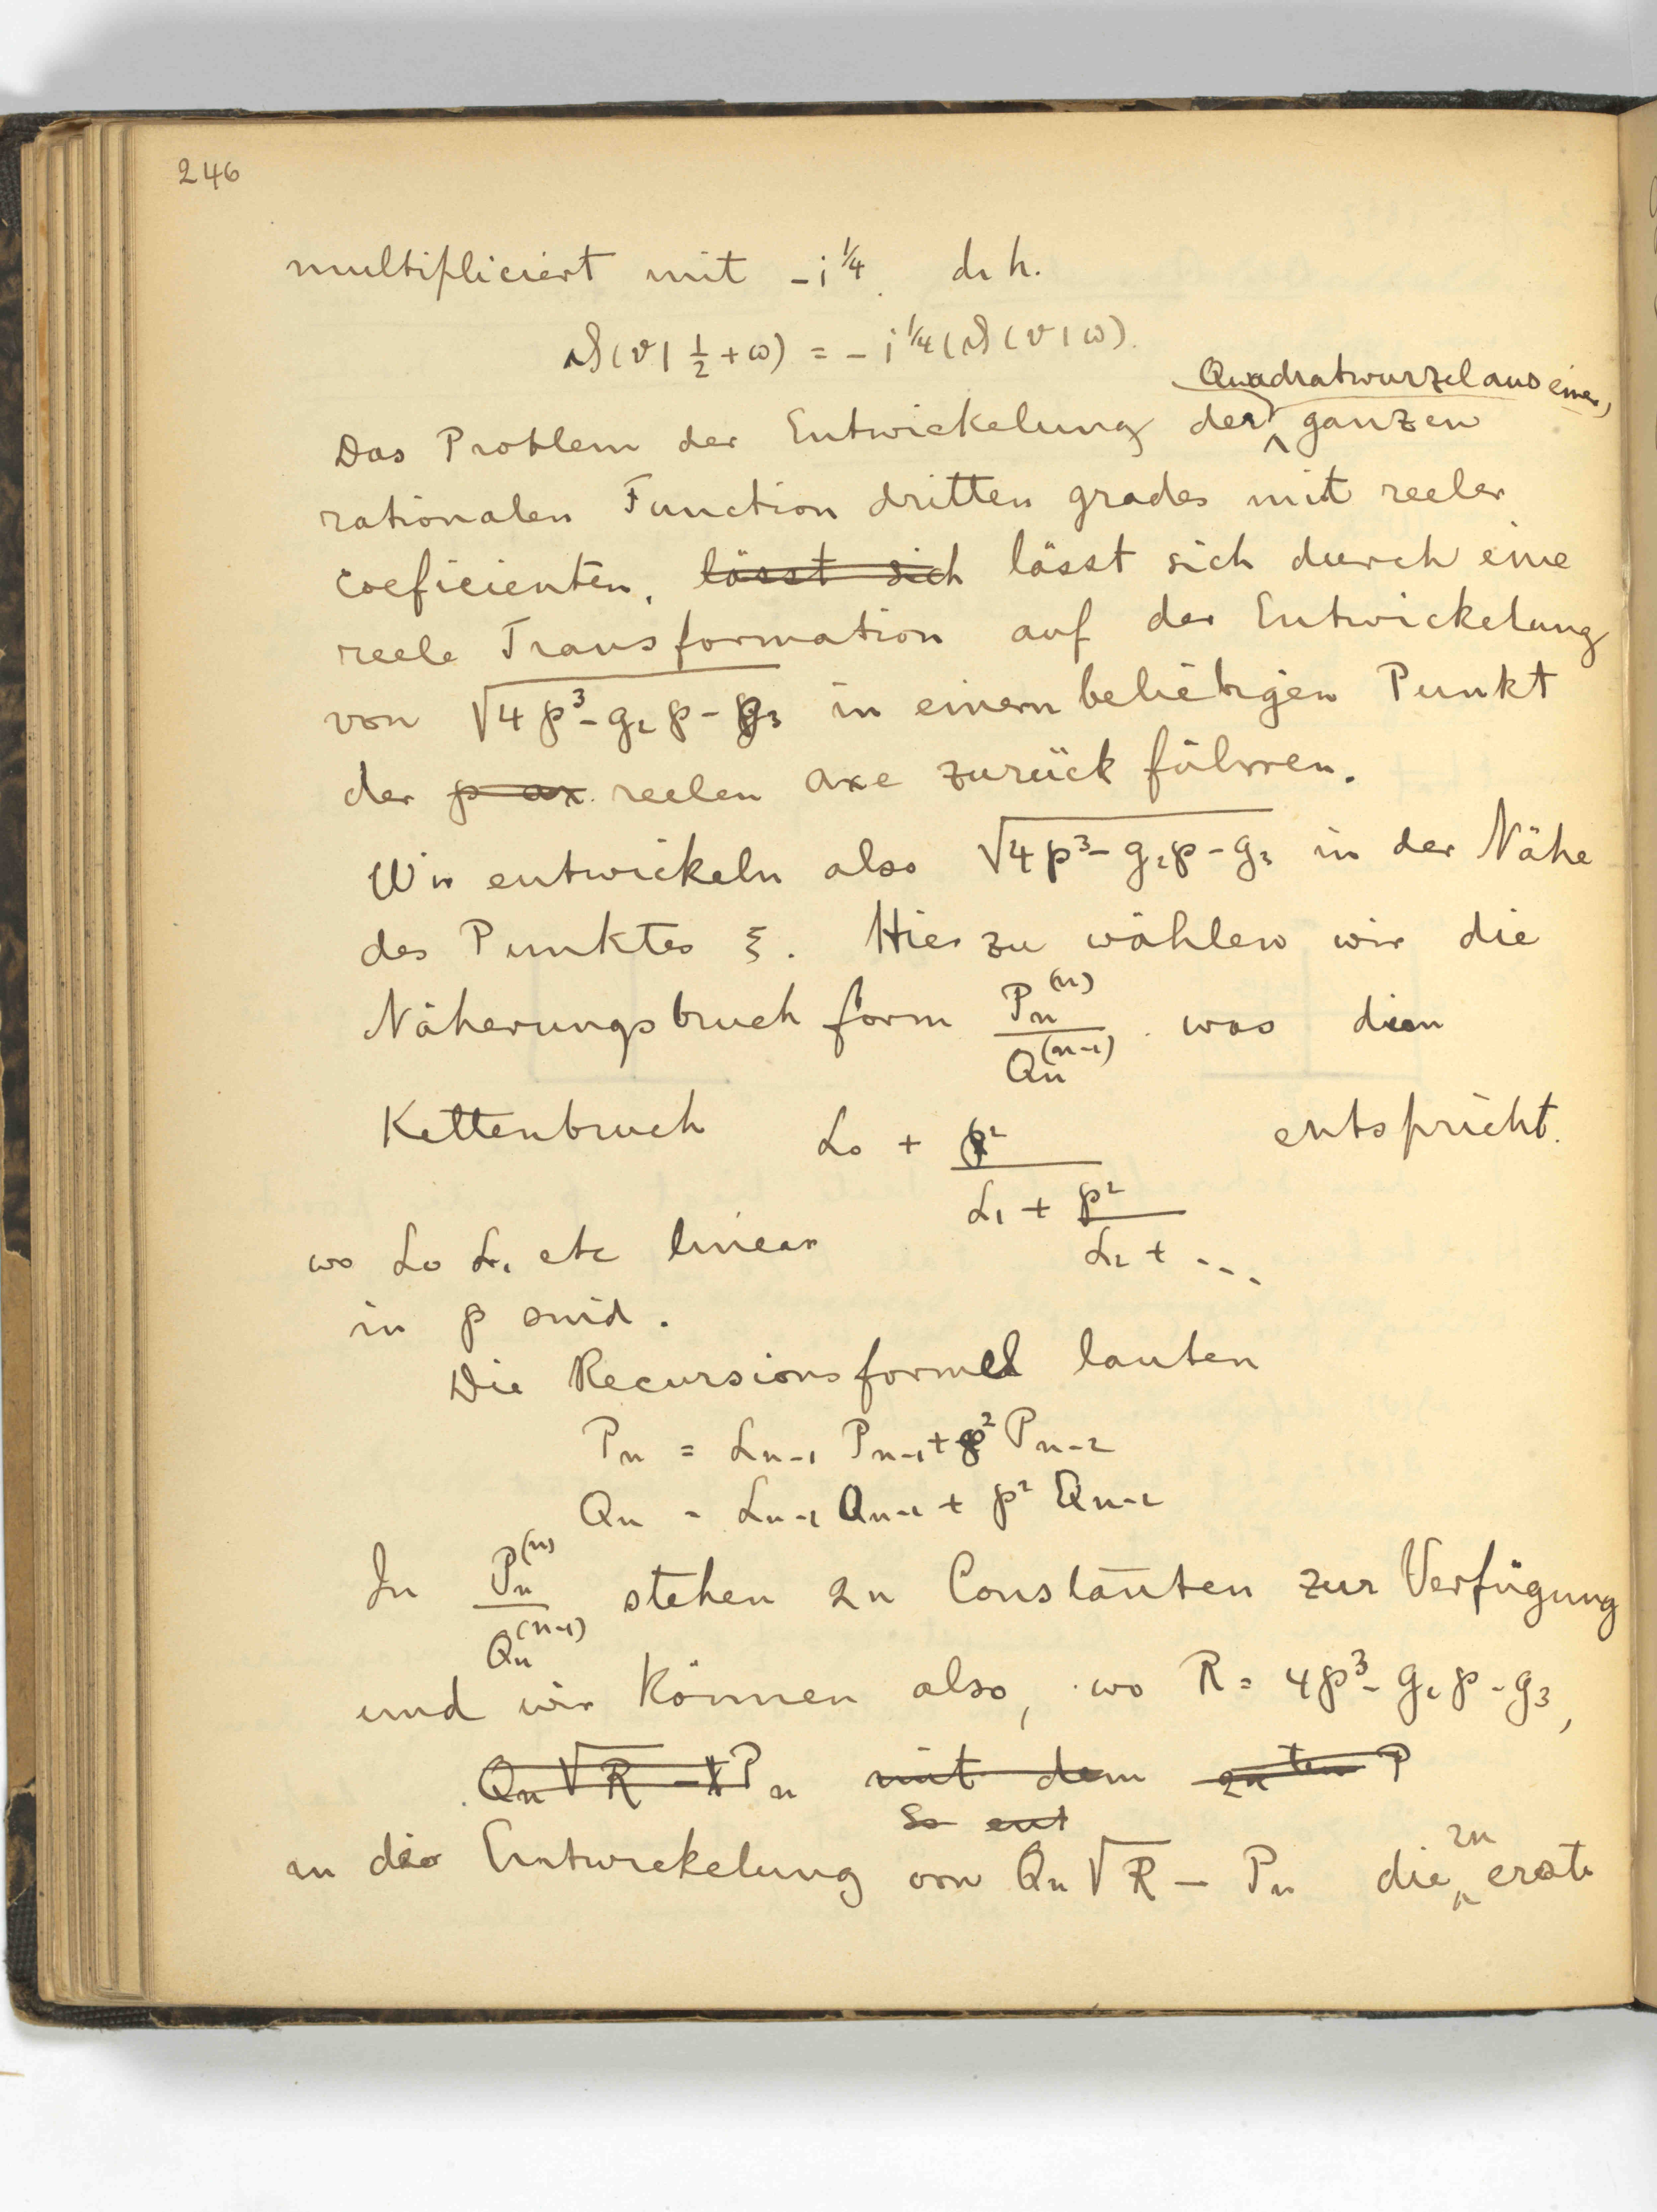 246
multipliciert mit -i^¼. d. h.
ϑ(v | ½ + ω) = - i^¼ (ϑ(v | ω).
Quadratwurzel aus einer
Das Problem der Entwickelung der ganzen
rationalen Function dritten grades mit reeler
Coeficienten, lässt sich lässt sich durch eine
reele Transformation auf der Entwickelung
von √4℘³ - g₂℘ - g₃ in einem beliebigen Punkt
der ℘ ax. reelen Axe zurück führen.
Wir entwickeln also √4℘³ - g₂℘ - g₃ in der Nähe
des Punktes ξ. Hierzu wählen wir die
Näherungsbruch form Pₙ⁽ⁿ⁾ / Qₙ⁽ⁿ⁻¹⁾ was dem
Kettenbruch L₀ + ℘² entspricht.
L₁ + ℘²
wo L₀ L₁ etc linear L₂ + ...
in ℘ sind.
Die Recursionsformel lauten
Pₙ = Lₙ₋₁ Pₙ₋₁ + ℘² Pₙ₋₂
Qₙ = Lₙ₋₁ Qₙ₋₁ + ℘² Qₙ₋₂
In Pₙ⁽ⁿ⁾ / Qₙ⁽ⁿ⁻¹⁾ stehen 2n Constanten zur Verfügung
und wir können also, wo R = 4℘³ - g₂℘ - g₃,
Qₙ √R - Pₙ mit dem 2n ten P
So ent
in die Entwickelung von Qₙ √R - Pₙ die 2n erste